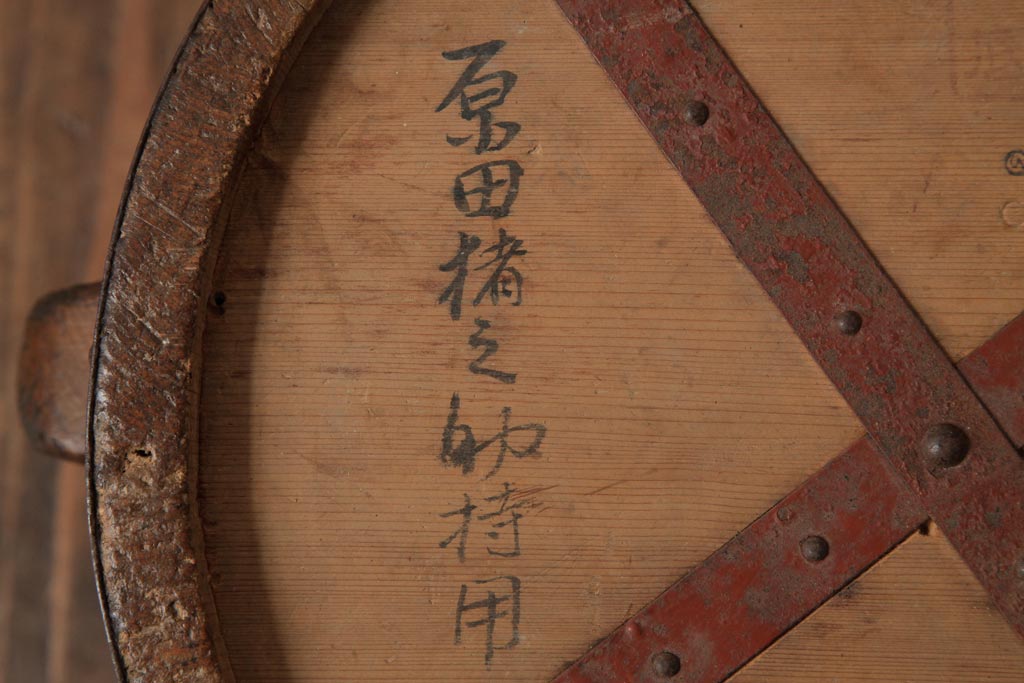 原田猪之助持用